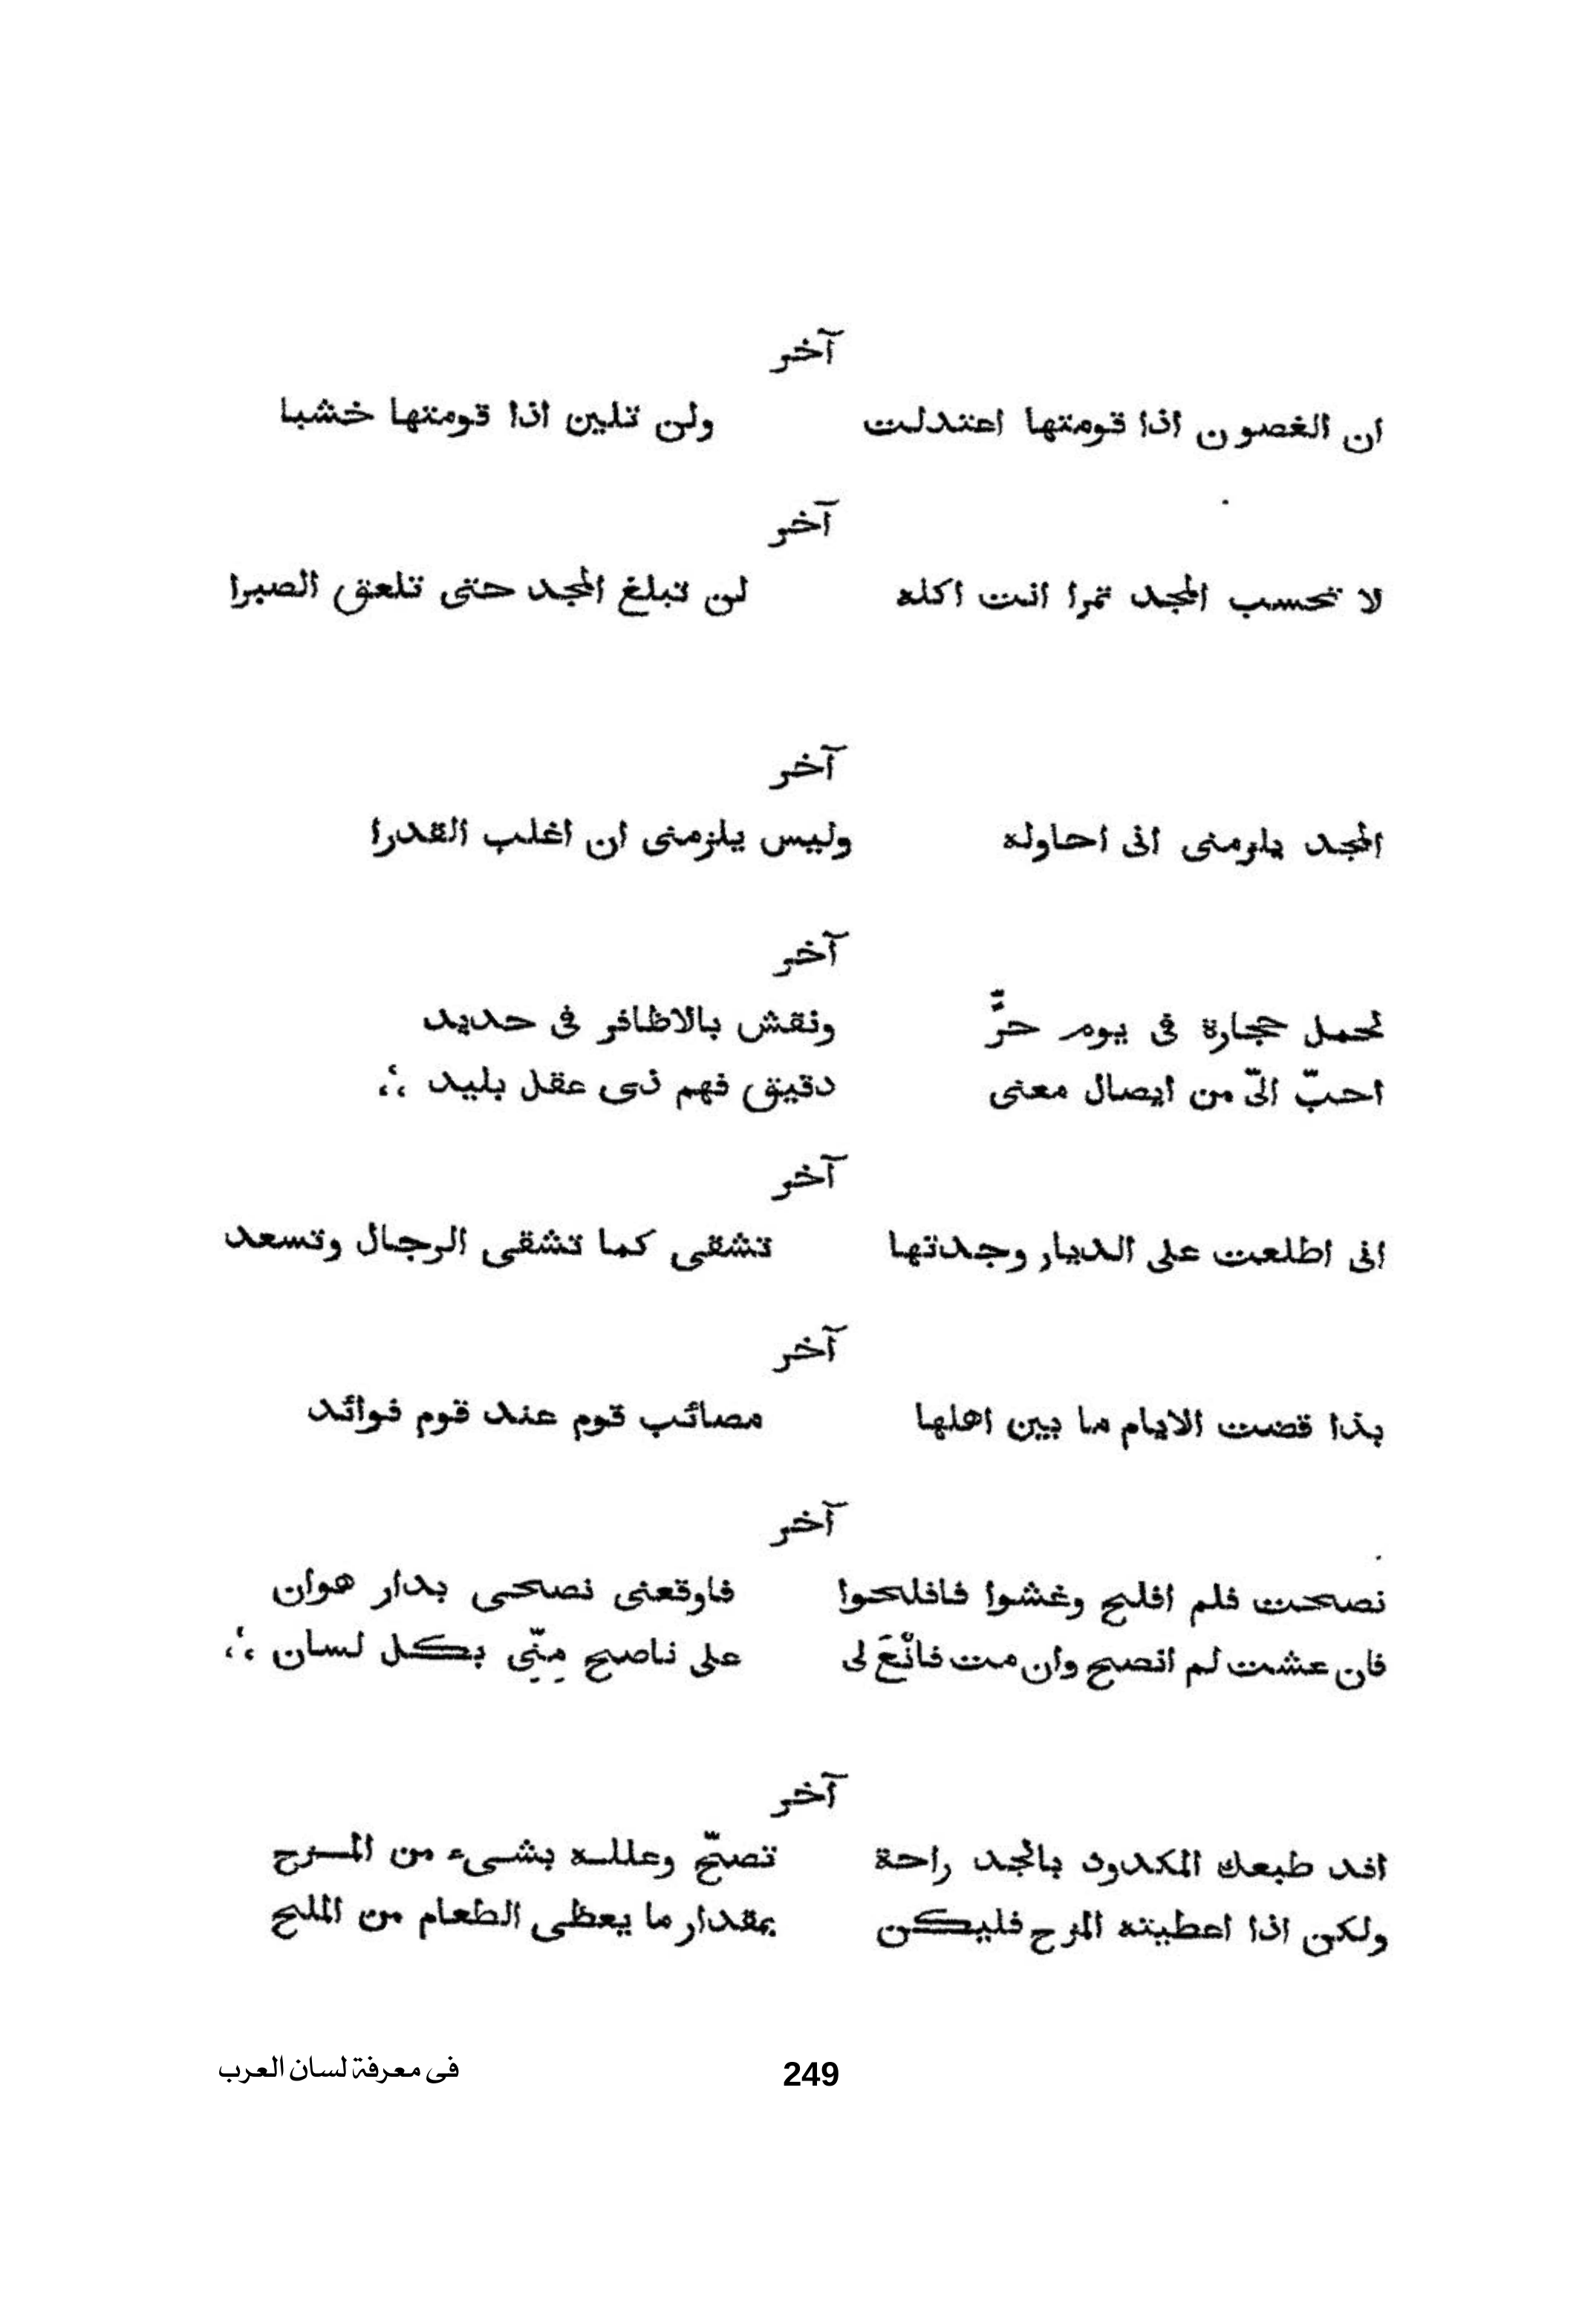 آخر
ان الغصون اذا قومتها اعتدلت ولن تلين اذا قومتها خشبا
آخر
لا تحسب المجد تمرا انت اكله لن تبلغ المجد حتى تلعق الصبرا
آخر
المجد يلزمنى انى احاوله وليس يلزمنى ان اغلب القدرا
آخر
لحمل حجارة فى يوم حرٍّ ونقش بالاظافر فى حديد
احبّ الىّ من ايصال معنى دقيق فهم ذى عقل بليد ؛،
آخر
انى اطلعت على الديار وجدتها تشقى كما تشقى الرجال وتسعد
آخر
بذا قضت الايام ما بين اهلها مصائب قوم عند قوم فوائد
آخر
نصحت فلم افلح وغشوا فافلحوا فاوقعنى نصحى بدار هوان
فان عشت لم انصح وان مت فانْعَ لى على ناصح مِنِّى بكل لسان ؛،
آخر
افد طبعك المكدود بالجد راحة تصحّ وعللـه بشـىء من المـزح
ولكن اذا اعطيته المزح فليكن بمقدار ما يعظى الطعام من الملح
249
فى معرفة لسان العرب